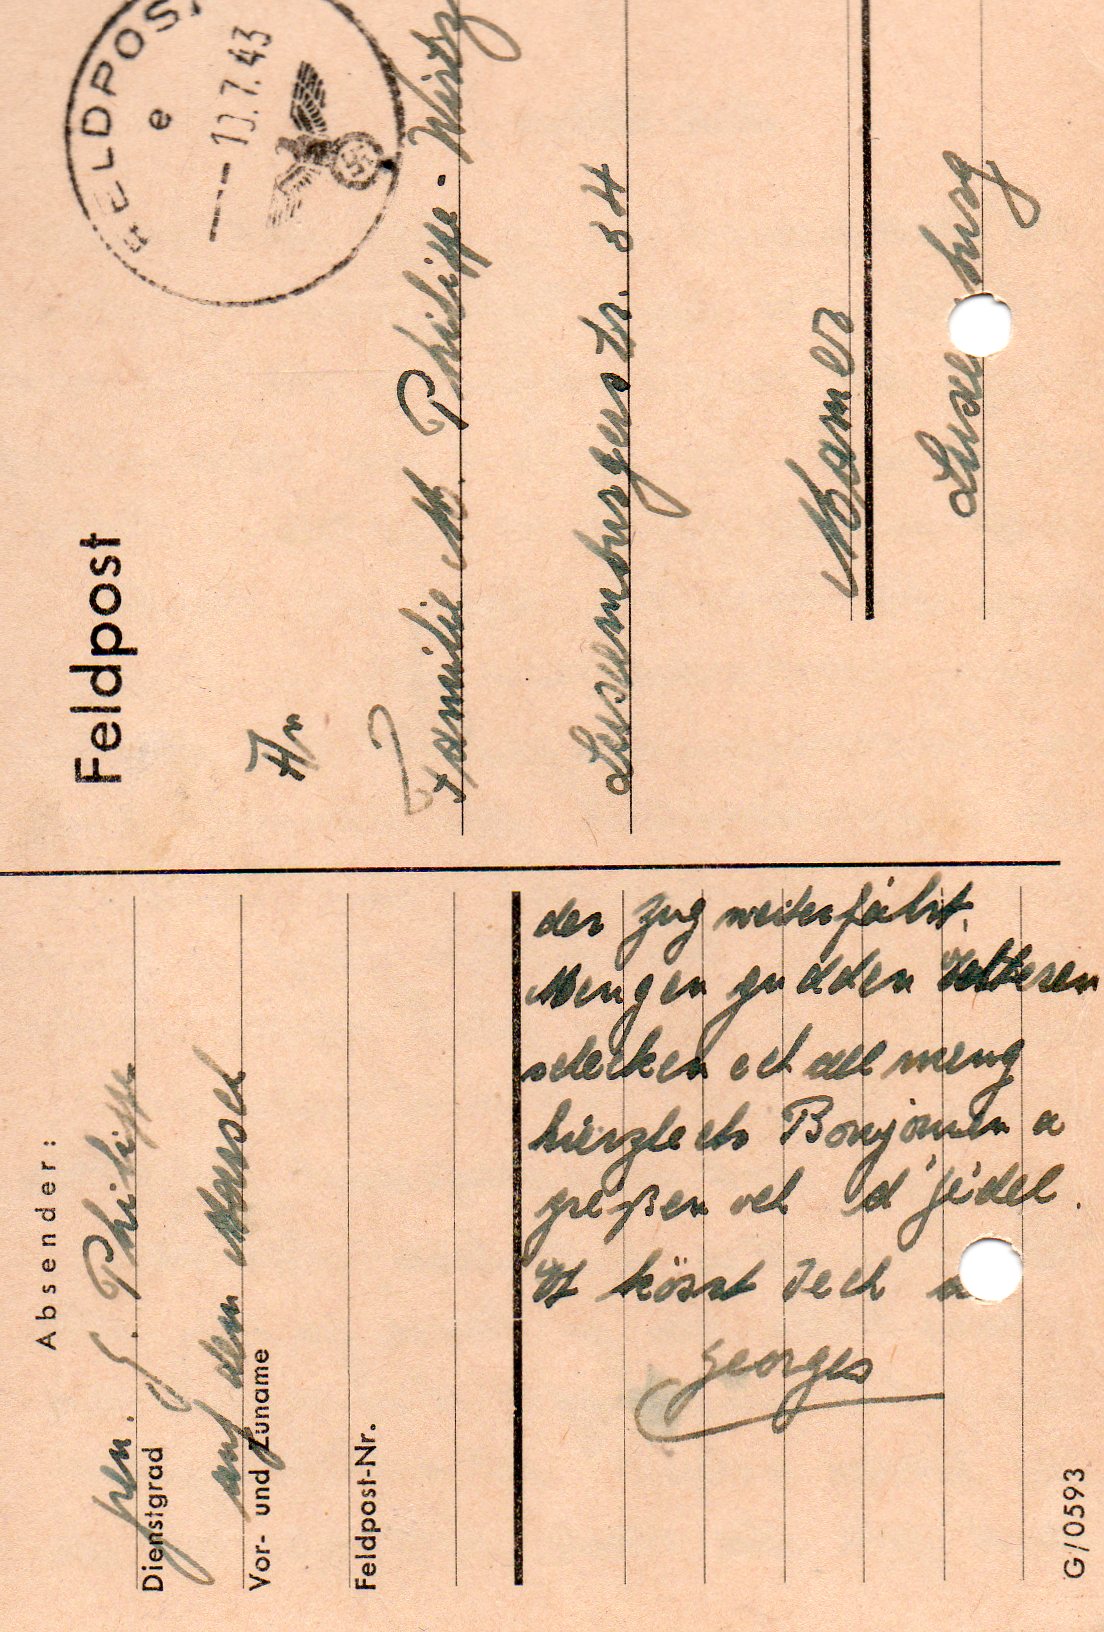 FELDPOST
e
10.7.43
Feldpost
An
Familie M. Philippe-Wirtz
Luxemburgerstr. 34
Kamer
Luxe burg
Absender:
G. Philippe
Dienstgrad
auf dem Marsch
Vor- und Zuname
Feldpost-Nr.
der Zug weiterfährt.
Mengen gudden Elteren
schecken ech all meng
hierzlech Bonjouren a
gréßen och d'Jéidel.
Et kösst Iech a
Georges
G/0593